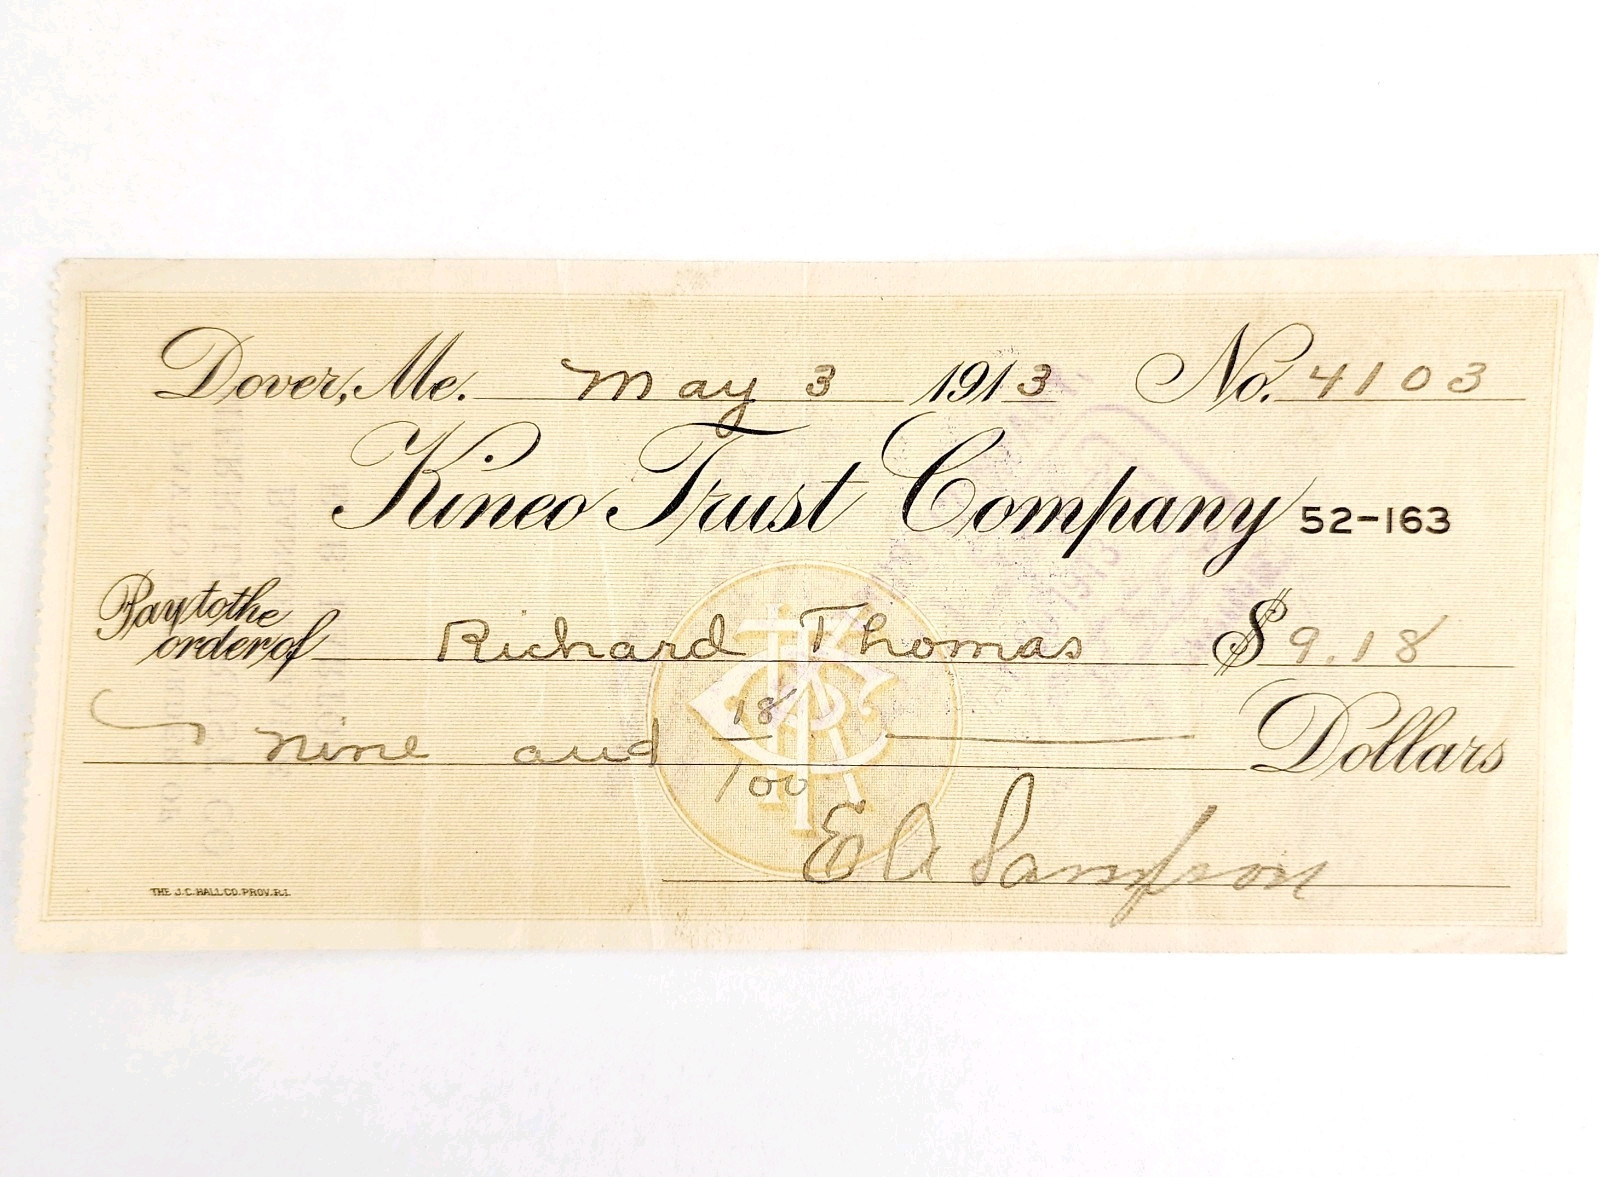 Dover, Me. May 3 1913 No. 4103
Kineo Trust Company 52-163
Pay to the
order of Richard Thomas $ 9.18
nine and 18/100 Dollars
E A Sampson
THE J.C. HALL CO. PROV. R.I.